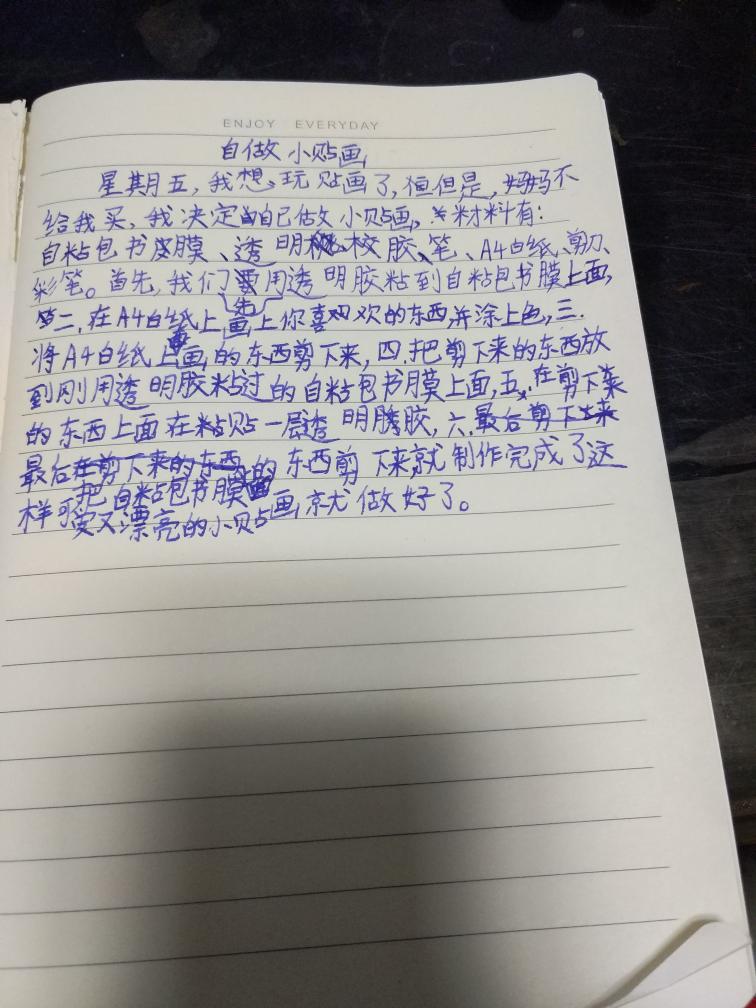 ENJOY EVERYDAY
自做小贴画
星期五,我想玩贴画了,但是,妈妈不
给我买,我决定自己做小贴画,材料有:
自粘包书皮膜、透明胶、笔、A4白纸、剪刀、
彩笔。首先,我们要先用透明胶粘到自粘包书膜上面,
第二,在A4白纸上画上你喜欢的东西,并涂上色,三.
将A4白纸上画的东西剪下来,四.把剪下来的东西放
到刚用透明胶粘过的自粘包书膜上面,五.在剪下来
的东西上面在粘贴一层透明胶,六.
最后把自粘包书膜的东西剪下来,就制作完成了这
样可爱又漂亮的小贴画就做好了。